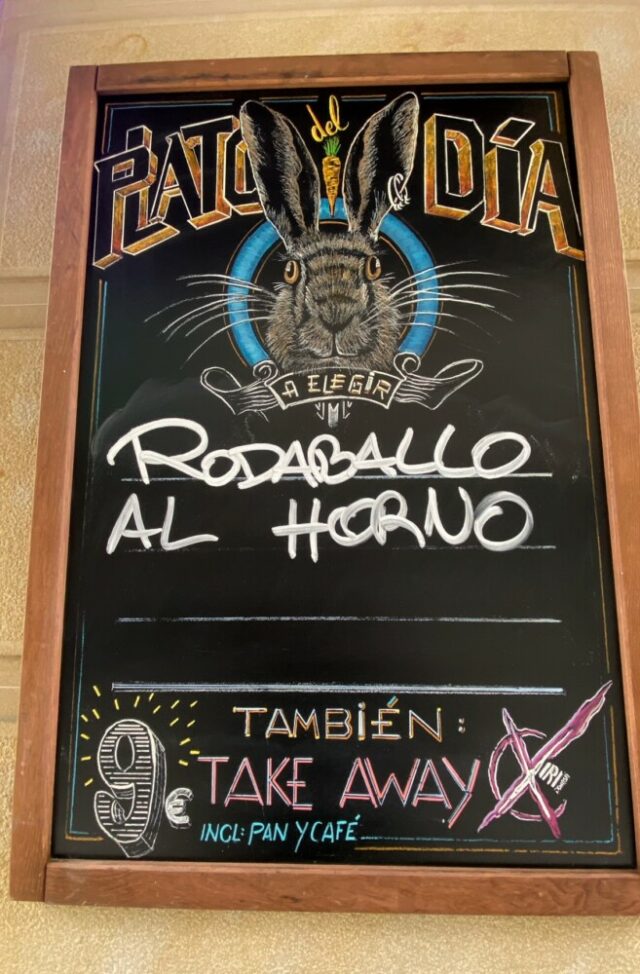 PLATO del DÍA
A ELEGIR
RODABALLO
AL HORNO
TAMBIÉN:
9€ TAKE AWAY
INCL: PAN Y CAFÉ